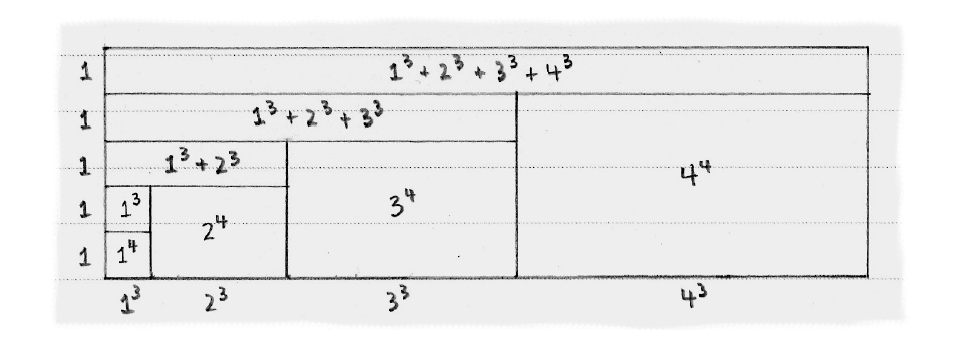 1 1³ + 2³ + 3³ + 4³
1 1³ + 2³ + 3³
1 1³ + 2³
4⁴
3⁴
1 1³
2⁴
1 1⁴
1³ 2³ 3³ 4³